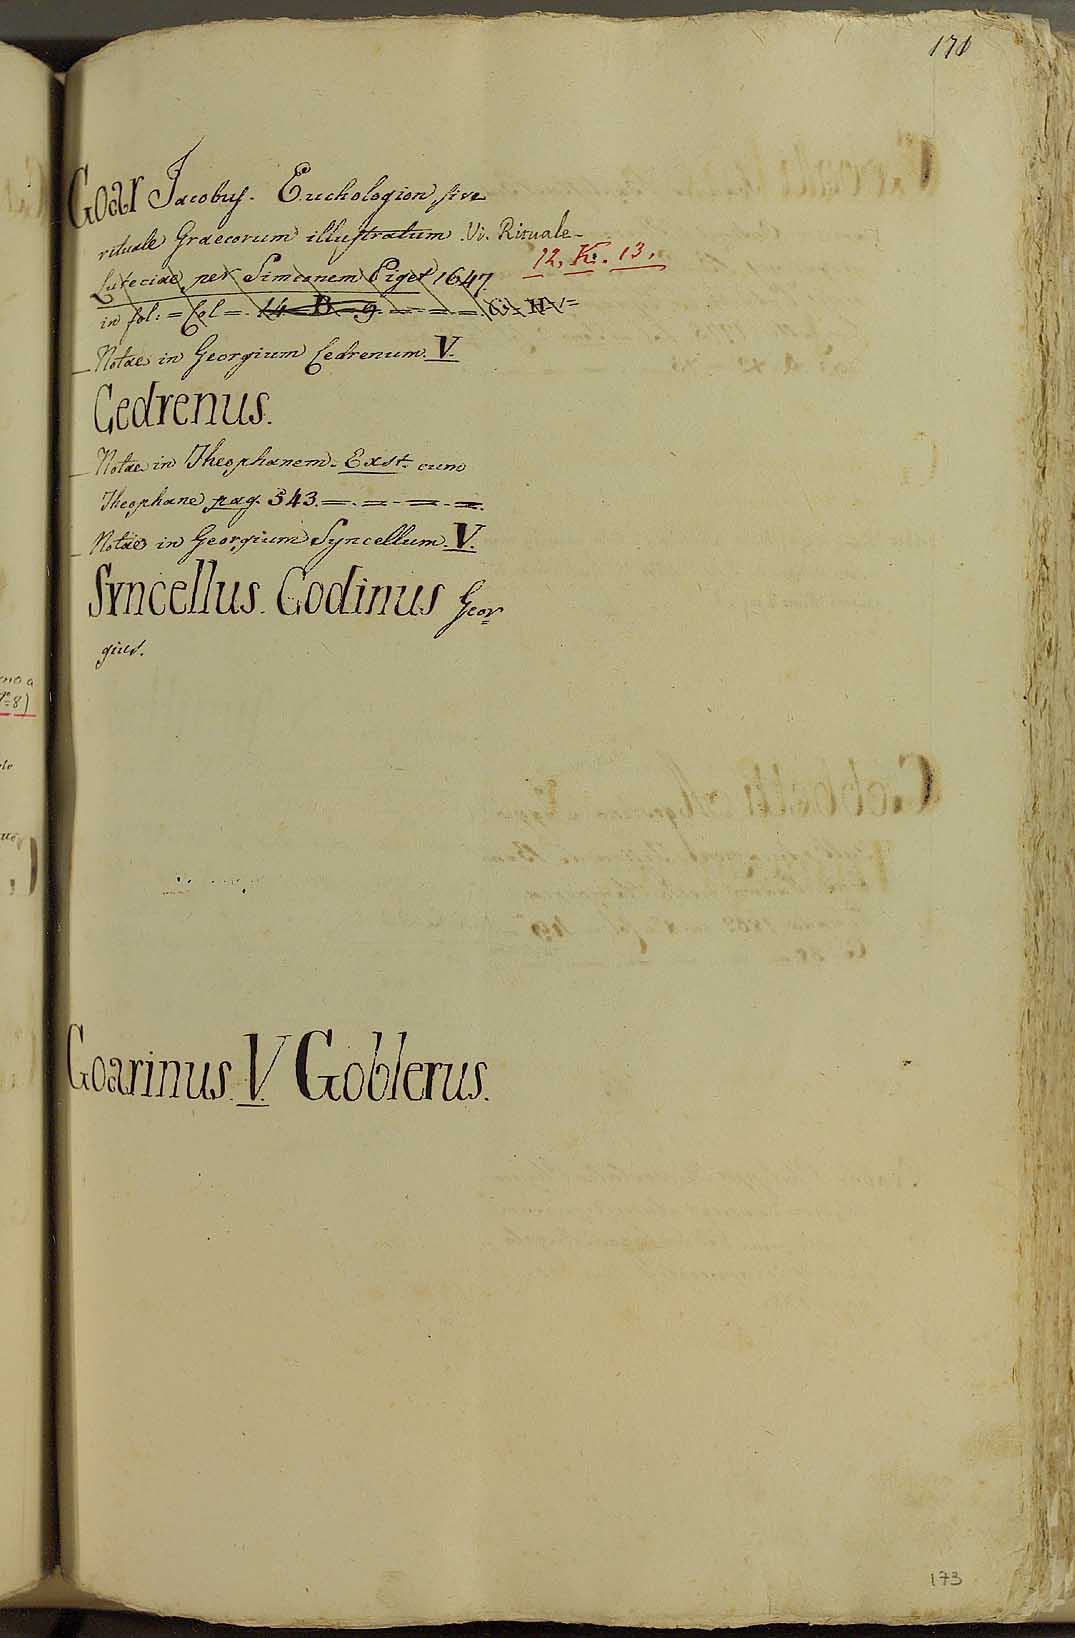 171
Goar Jacobus. Euchologion, sive
rituale Graecorum illustratum. Vi. Rituale-
12. K. 13.
Luteciae, per Simionem Piget 1647
in fol: = Col =. 14 - B - 9. = = = . G - H - =
_ Notae in Georgium Cedrenum. V.
Cedrenus.
_ Notae in Theophanem. Exst. cum
Theophane pag. 543. = . = - = - =.
_ Notae in Georgium Syncellum. V.
Syncellus. Codinus Geor=
gius.
Goarinus. V. Goblerus.
173